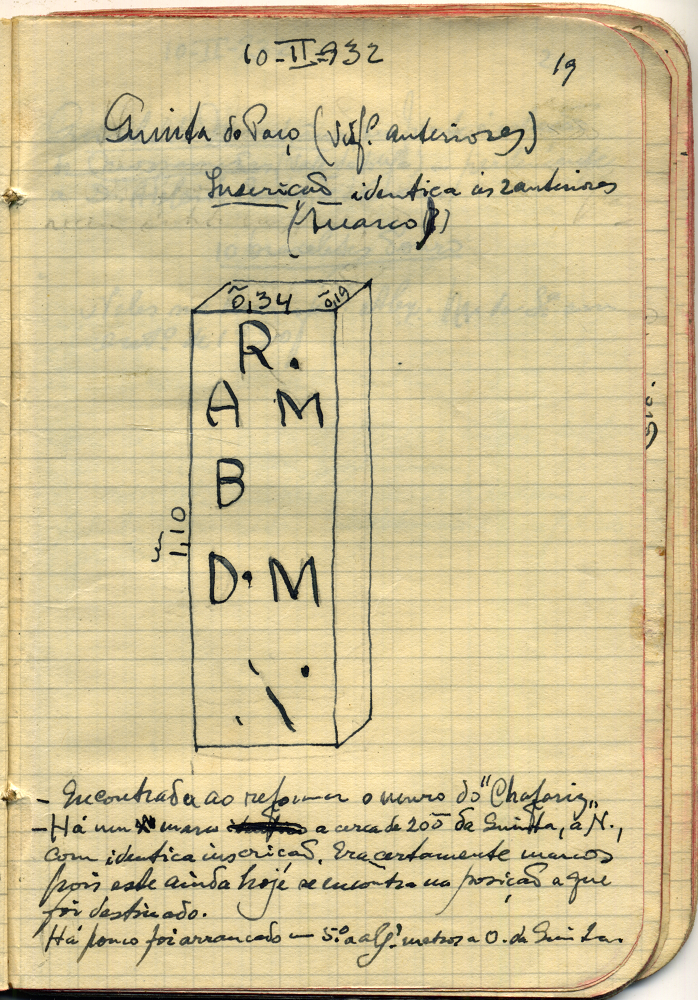 10-II-932
19
Quinta do Paço (vid. f.s anteriores)
Inscrição identica ás 2 anteriores
(Marco?)
0,34 0,19
R.
A M
B
D. M
1,10
- Encontrada ao reformar o muro do "Chafariz"
- Há um marco a cerca de 200 da Quinta, a N.,
com identica inscrição. Era certamente marcos
pois este ainda hoje se encontra na posição a que
foi destinado.
Há pouco foi arrancado um metros a O. da Quinta.